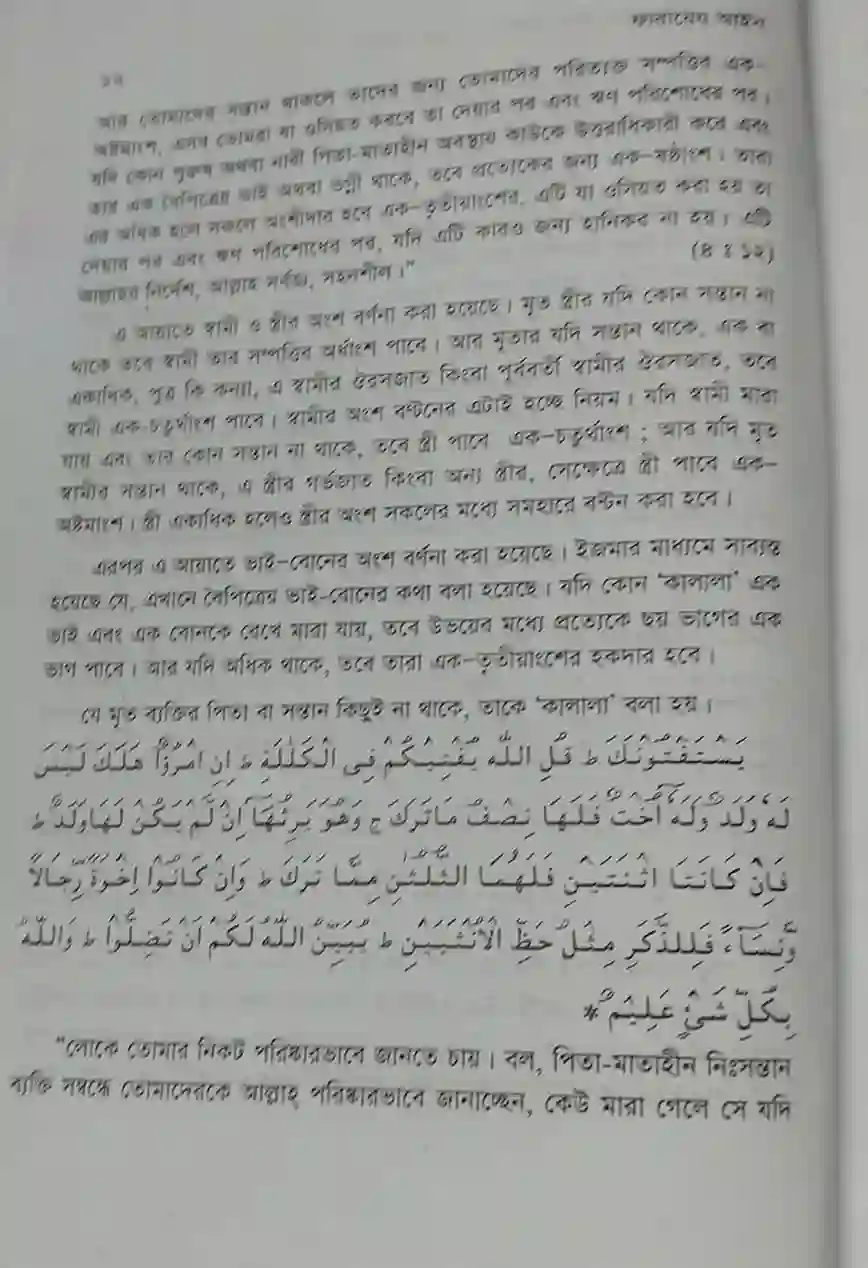 ফারায়েয আইন
১২
আর তোমাদের সন্তান থাকলে তাদের জন্য তোমাদের পরিত্যক্ত সম্পত্তির এক-
অষ্টমাংশ, এসব তোমরা যা ওসিয়ত করবে তা দেয়ার পর এবং ঋণ পরিশোধের পর।
যদি কোন পুরুষ অথবা নারী পিতা-মাতাহীন অবস্থায় কাউকে উত্তরাধিকারী করে এবং
তার এক বৈপিত্রেয় ভাই অথবা ভগ্নী থাকে, তবে প্রত্যেকের জন্য এক-ষষ্ঠাংশ। তারা
এর অধিক হলে সকলে অংশীদার হবে এক-তৃতীয়াংশের, এটি যা ওসিয়ত করা হয় তা
দেয়ার পর এবং ঋণ পরিশোধের পর, যদি এটি কারও জন্য হানিকর না হয়। এটি
আল্লাহর নির্দেশ, আল্লাহ সর্বজ্ঞ, সহনশীল।" (৪ ঃ ১২)
এ আয়াতে স্বামী ও স্ত্রীর অংশ বর্ণনা করা হয়েছে। মৃত স্ত্রীর যদি কোন সন্তান না
থাকে তবে স্বামী তার সম্পত্তির অর্ধাংশ পাবে। আর মৃতার যদি সন্তান থাকে, এক বা
একাধিক, পুত্র কি কন্যা, এ স্বামীর ঔরসজাত কিংবা পূর্ববর্তী স্বামীর ঔরসজাত, তবে
স্বামী এক-চতুর্থাংশ পাবে। স্বামীর অংশ বণ্টনের এটাই হচ্ছে নিয়ম। যদি স্বামী মারা
যায় এবং তার কোন সন্তান না থাকে, তবে স্ত্রী পাবে এক-চতুর্থাংশ ; আর যদি মৃত
স্বামীর সন্তান থাকে, এ স্ত্রীর গর্ভজাত কিংবা অন্য স্ত্রীর, সেক্ষেত্রে স্ত্রী পাবে এক-
অষ্টমাংশ। স্ত্রী একাধিক হলেও স্ত্রীর অংশ সকলের মধ্যে সমহারে বন্টন করা হবে।
এরপর এ আয়াতে ভাই-বোনের অংশ বর্ণনা করা হয়েছে। ইজমার মাধ্যমে সাব্যস্ত
হয়েছে যে, এখানে বৈপিত্রেয় ভাই-বোনের কথা বলা হয়েছে। যদি কোন 'কালালা' এক
ভাই এবং এক বোনকে রেখে মারা যায়, তবে উভয়ের মধ্যে প্রত্যেকে ছয় ভাগের এক
ভাগ পাবে। আর যদি অধিক থাকে, তবে তারা এক-তৃতীয়াংশের হকদার হবে।
যে মৃত ব্যক্তির পিতা বা সন্তান কিছুই না থাকে, তাকে 'কালালা' বলা হয়।
يَسْتَفْتُونَكَ ط قُلِ اللّٰهُ يُفْتِيكُمْ فِى الْكَلٰلَةِ ط اِنِ امْرُؤٌا هَلَكَ لَيْسَ
لَهٗ وَلَدٌ وَّلَهٗٓ اُخْتٌ فَلَهَا نِصْفُ مَاتَرَكَ ج وَهُوَ يَرِثُهَآ اِنْ لَّمْ يَكُنْ لَهَاوَلَدٌ ط
فَاِنْ كَانَتَا اثْنَتَيْنِ فَلَهُمَا الثُّلُثٰنِ مِمَّا تَرَكَ ط وَاِنْ كَانُوْا اِخْوَةً رِّجَالًا
وَّنِسَآءً فَلِلذَّكَرِ مِثْلُ حَظِّ الْاُنْثَيَيْنِ ط يُبَيِّنُ اللّٰهُ لَكُمْ اَنْ تَضِلُّوْا ط وَاللّٰهُ
بِكُلِّ شَىْءٍ عَلِيْمٌ *
"লোকে তোমার নিকট পরিষ্কারভাবে জানতে চায়। বল, পিতা-মাতাহীন নিঃসন্তান
ব্যক্তি সম্বন্ধে তোমাদেরকে আল্লাহ্ পরিষ্কারভাবে জানাচ্ছেন, কেউ মারা গেলে সে যদি